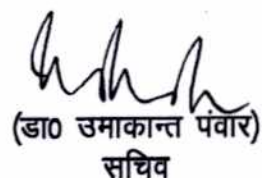 (डा० उमाकान्त पंवार)
सचिव